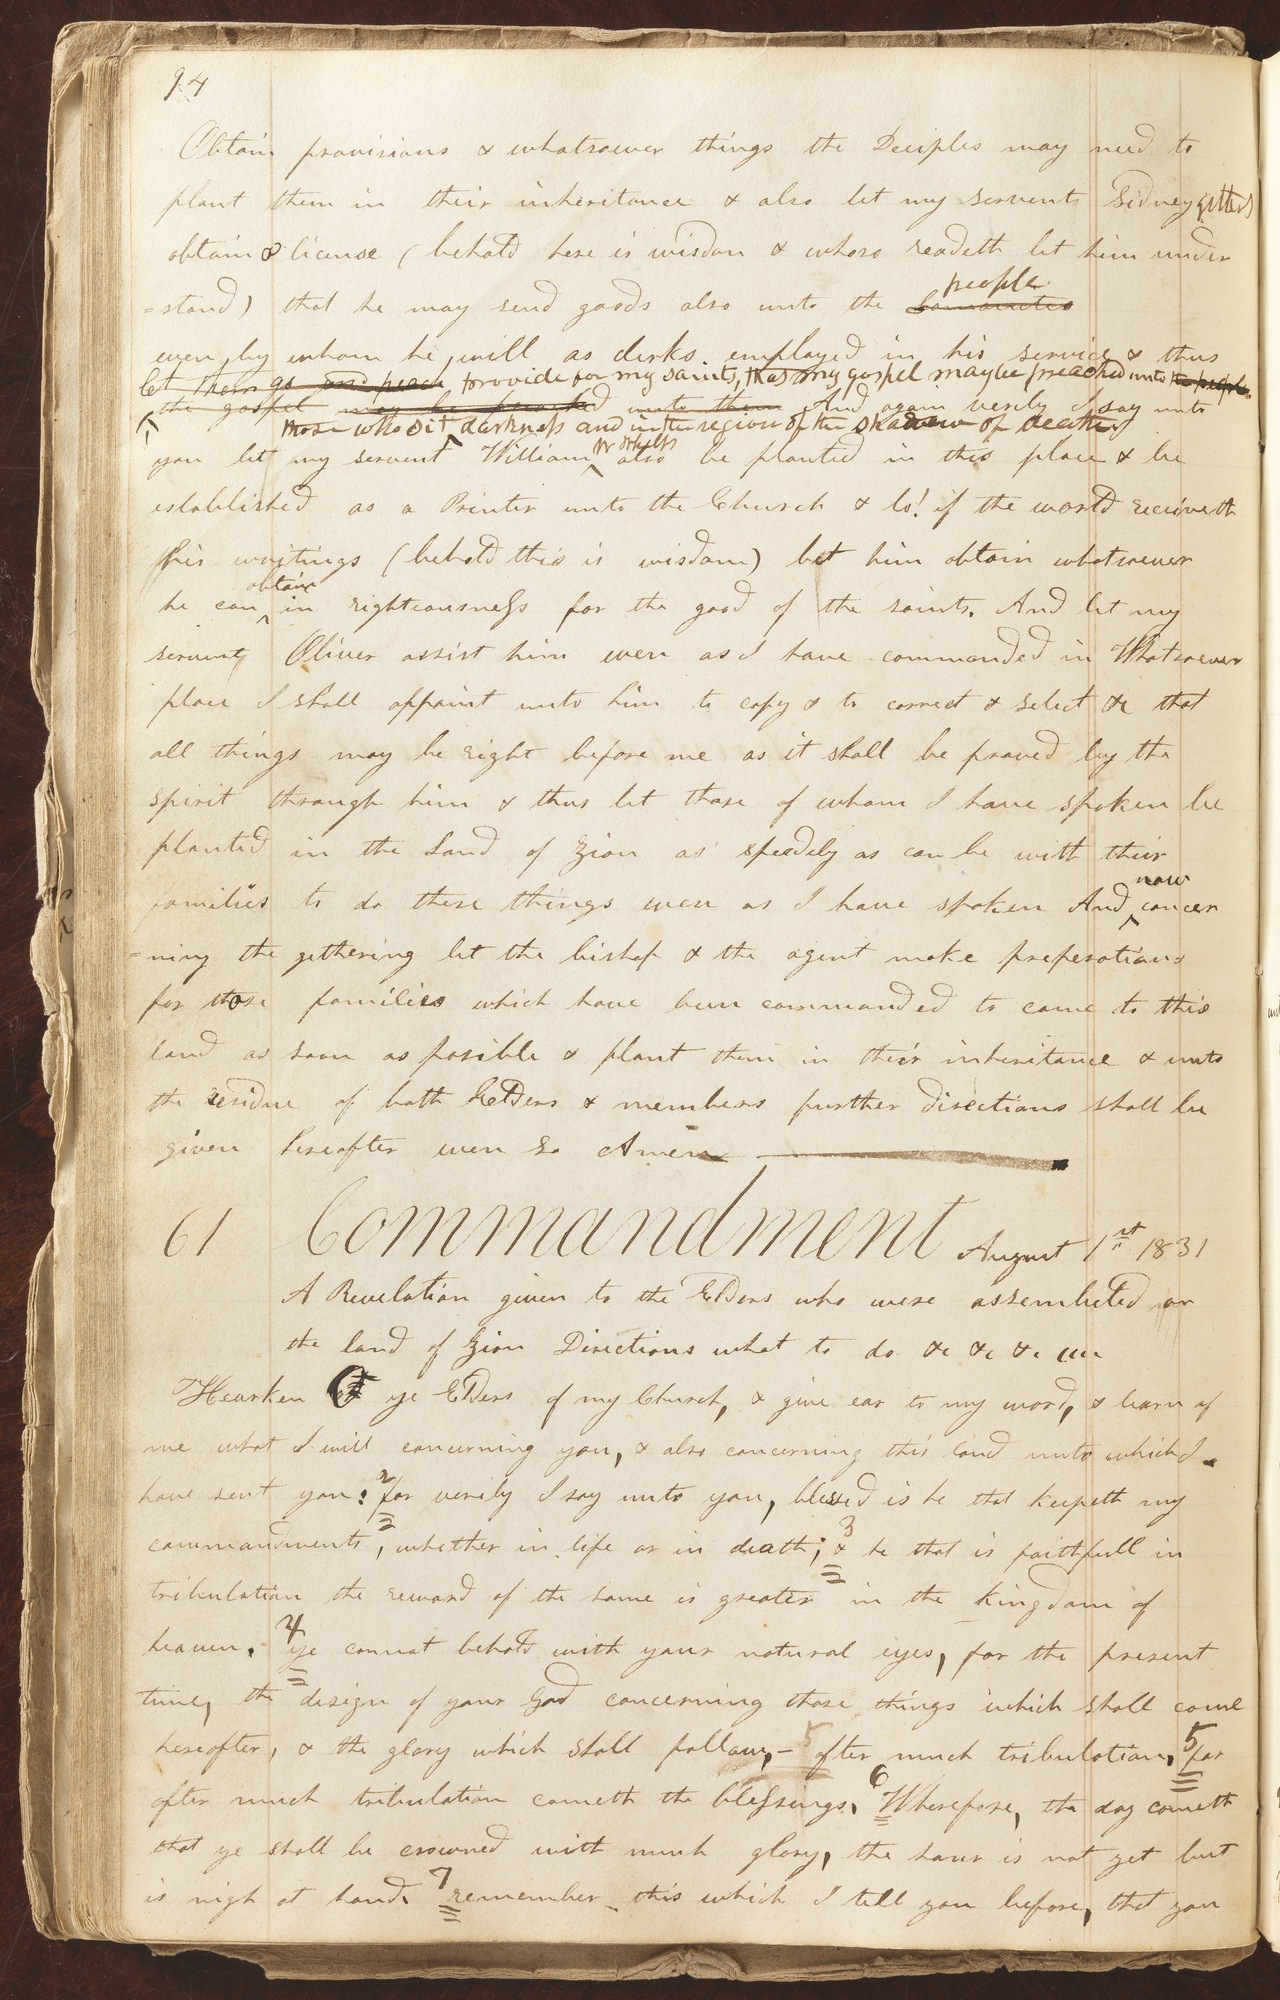 94
Obtain provisions & whatsoever things the Deciples may need to
plant them in their inheritance & also let my servents Sidney gilbert
obtain a license (behold here is wisdom & whoso readeth let him under
=stand) that he may send goods also unto the Lamanites
people
even by whom he will as clerks employed in his service & thus
let them go and preach provide for my saints, that my gospel may be preached unto the people
the gospel may be preached unto them And again verily I say unto
those who sit darkness and in the region of the shadow of death
you let my servent William also be planted in this place & be
W Phelps
established as a Printer unto the Church & lo! if the world receiveth
his writings (behold this is wisdom) let him obtain whatsoever
he can in righteousness for the good of the saints. And let my
obtain
servent Oliver assist him even as I have commanded in Whatsoever
place I shall appoint unto him to copy & to correct & select &c that
all things may be right before me as it shall be proved by the
spirit through him & thus let those of whom I have spoken be
planted in the Land of Zion as speedily as can be with their
families to do these things even as I have spoken And concer
now
=ning the gethering let the bishop & the agent make preperations
for those families which have been commanded to come to this
land as soon as posible & plant them in their inheritance & unto
the residue of both Elders & members further directions shall be
given hereafter even so Amen
61 Commandment August 1st 1831
A Revelation given to the Elders who were assembeled on
the land of Zion Directions what to do &c &c &c
Hearken O ye Elders of my Church, & give ear to my word, & learn of
me what I will concerning you, & also concerning this land unto which I
have sent you: 2 for verily I say unto you, blessed is he that keepeth my
commandments, whether in life or in death; 3 & he that is faithfull in
tribulation the reward of the same is greater in the kingdom of
heaven. 4 ye cannot behold with your natural eyes, for the present
time, the design of your God concerning those things which shall come
hereafter, & the glory which shall follow, – 5 after much tribulation, 5 for
after much tribulation cometh the blessings. 6 Wherefore, the day cometh
that ye shall be crowned with much glory, the hour is not yet but
is nigh at hand. 7 remember this which I tell you before, that you